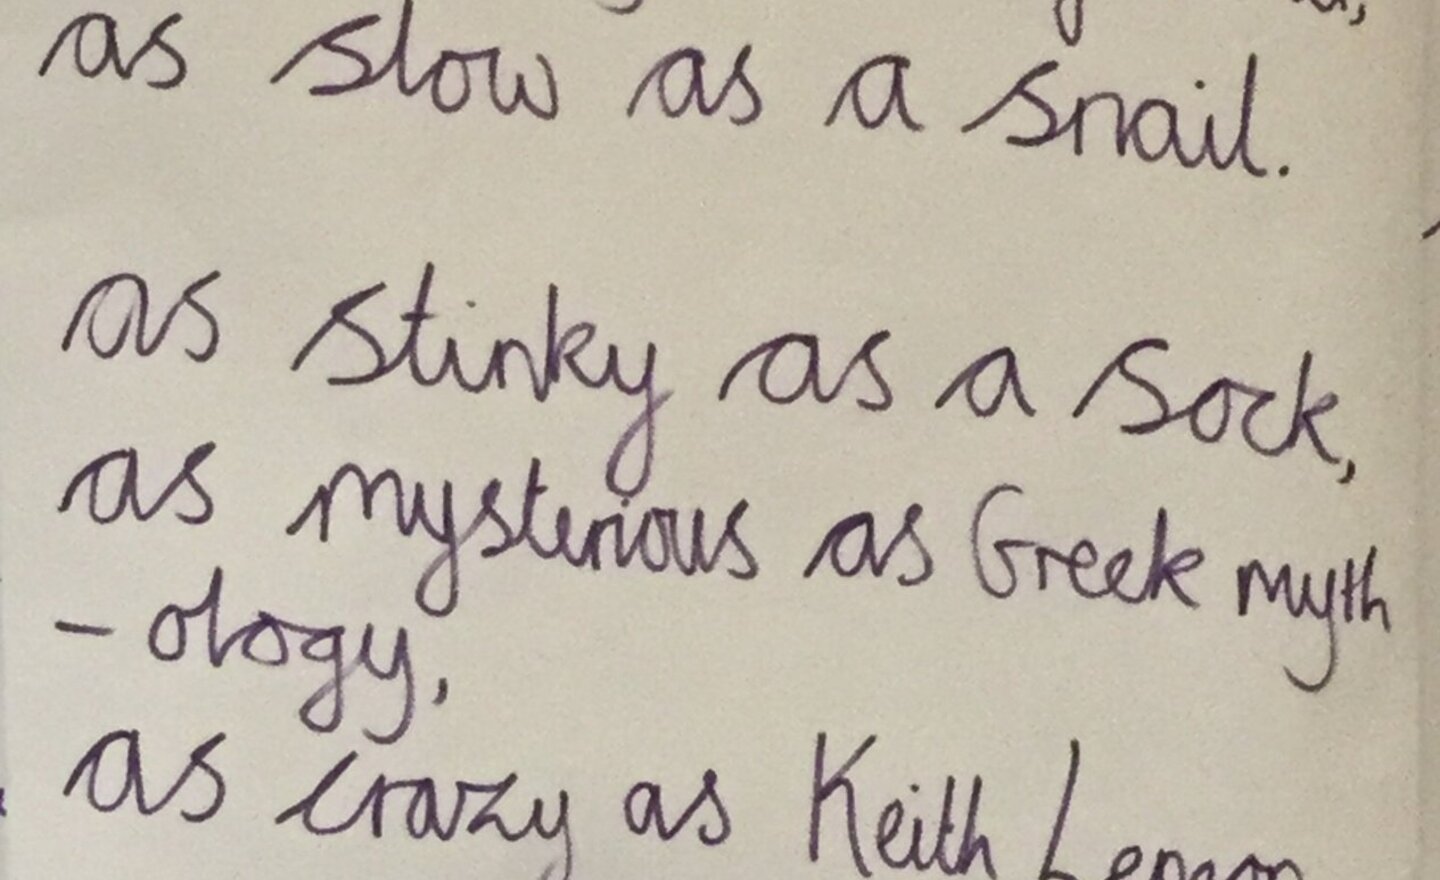 as slow as a snail.
as stinky as a sock,
as mysterious as Greek myth
- ology,
as crazy as Keith Lemon